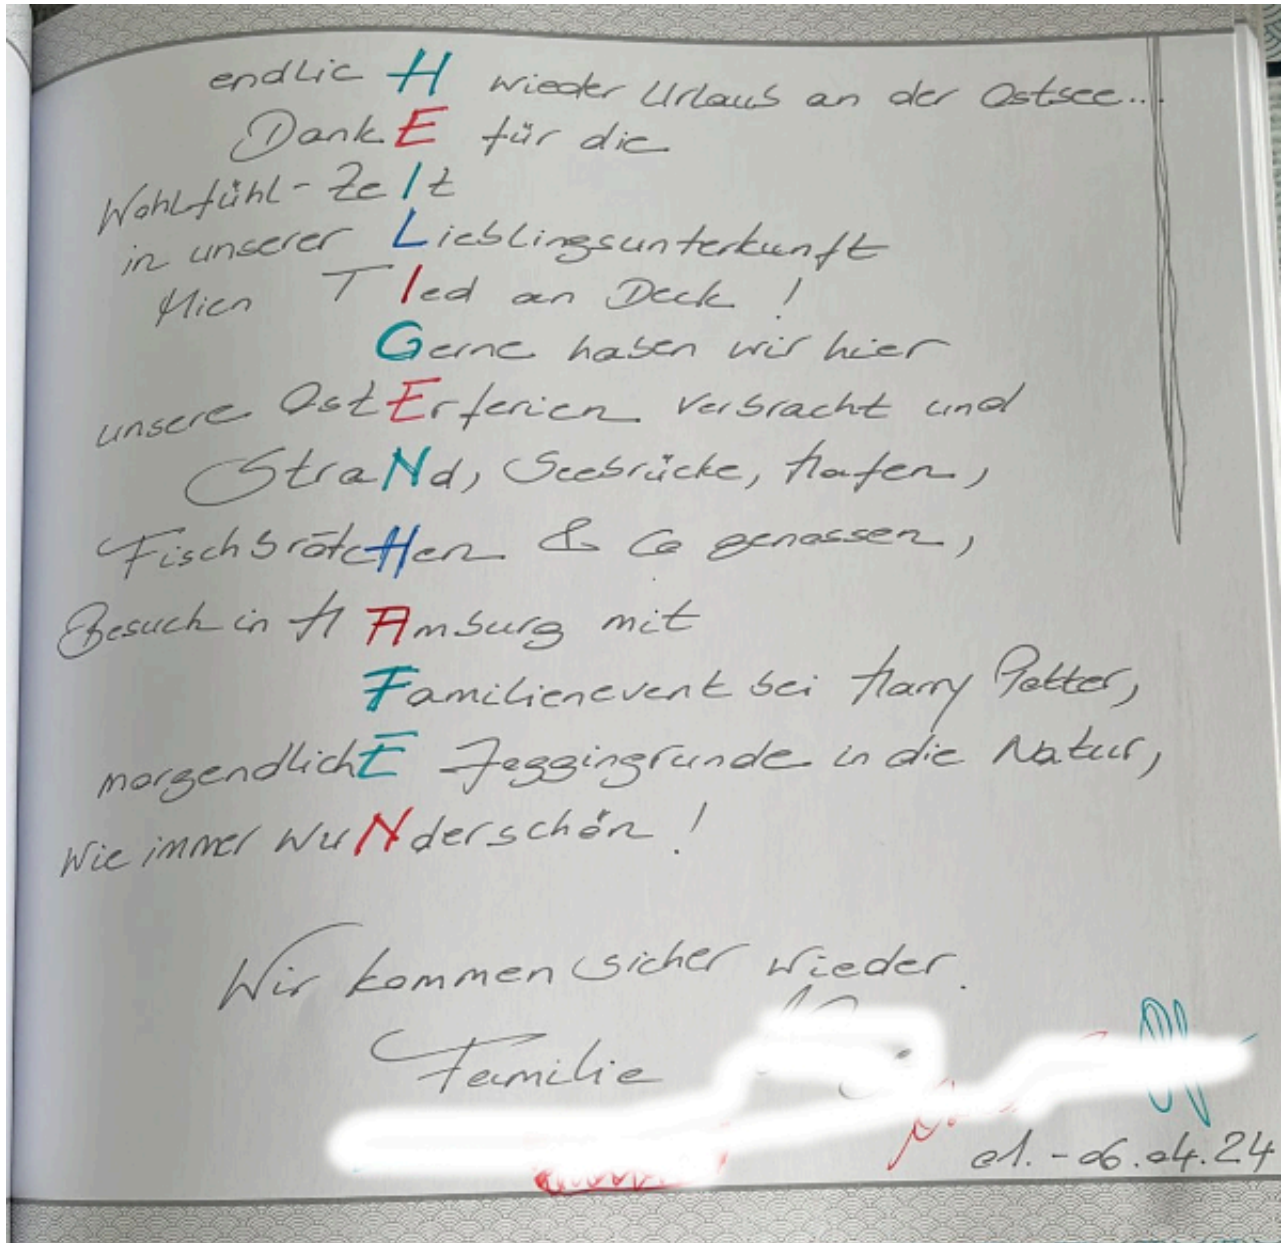 endlic H wieder Urlaub an der Ostsee...
DankE für die
Wohlfühl-ZeIt
in unserer Lieblingsunterkunft
Mien TIed an Deck!
Gerne haben wir hier
unsere OstErferien verbracht und
StraNd, Seebrücke, Hafen,
FischbrötcHen & Co genossen,
Besuch in HAmburg mit
Familienevent bei Harry Potter,
morgendlichE Joggingrunde in die Natur,
Wie immer wuNderschön!
Wir kommen sicher wieder.
Familie
01.-06.04.24